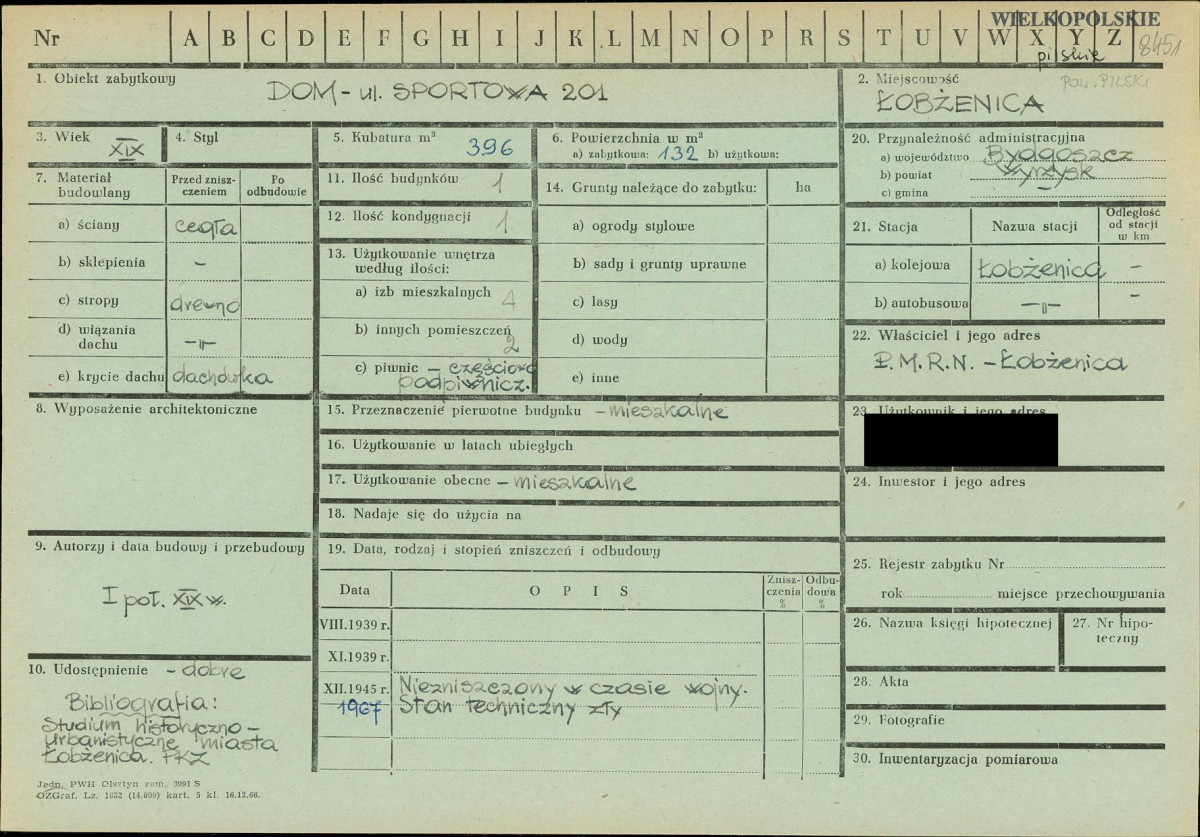 WIELKOPOLSKIE
Nr A B C D E F G H I J K L M N O P R S T U V W X Y Z
8451
pilskie
1. Obiekt zabytkowy
DOM - ul. SPORTOWA 201
2. Miejscowość
POW. PILSKI
ŁOBŻENICA
3. Wiek XIX
4. Styl
5. Kubatura m³ 396
6. Powierzchnia w m²
a) zabytkowa: 132 b) użytkowa:
7. Materiał budowlany
Przed zniszczeniem
Po odbudowie
a) ściany cegła
b) sklepienia -
c) stropy drewno
d) wiązania dachu -"-
e) krycie dachu dachówka
11. Ilość budynków 1
12. Ilość kondygnacji 1
13. Użytkowanie wnętrza według ilości:
a) izb mieszkalnych 4
b) innych pomieszczeń 2
c) piwnic - częściowo podpiwnicz.
14. Grunty należące do zabytku: ha
a) ogrody stylowe
b) sady i grunty uprawne
c) lasy
d) wody
e) inne
20. Przynależność administracyjna
a) województwo Bydgoszcz
b) powiat Wyrzysk
c) gmina -
21. Stacja
Nazwa stacji
Odległość od stacji w km
a) kolejowa Łobżenica -
b) autobusowa -"- -
22. Właściciel i jego adres
P.M.R.N. - Łobżenica
8. Wyposażenie architektoniczne
15. Przeznaczenie pierwotne budynku - mieszkalne
16. Użytkowanie w latach ubiegłych
17. Użytkowanie obecne - mieszkalne
18. Nadaje się do użycia na
23. Użytkownik i jego adres
24. Inwestor i jego adres
9. Autorzy i data budowy i przebudowy
I poł. XIX w.
19. Data, rodzaj i stopień zniszczeń i odbudowy
Data
OPIS
Zniszczenia %
Odbudowa %
VIII.1939 r.
XI.1939 r.
XII.1945 r. Niezniszczony w czasie wojny.
1967 Stan techniczny zły
25. Rejestr zabytku Nr
rok miejsce przechowywania
26. Nazwa księgi hipotecznej
27. Nr hipoteczny
28. Akta
29. Fotografie
30. Inwentaryzacja pomiarowa
10. Udostępnienie - dobre
Bibliografia:
Studium historyczno-
urbanistyczne miasta
Łobżenica. PKZ
Jedn. PWH Olsztyn zam. 3991 S
OZGraf. Lz. 1632 (14.000) kart. 5 kl. 16.12.66.